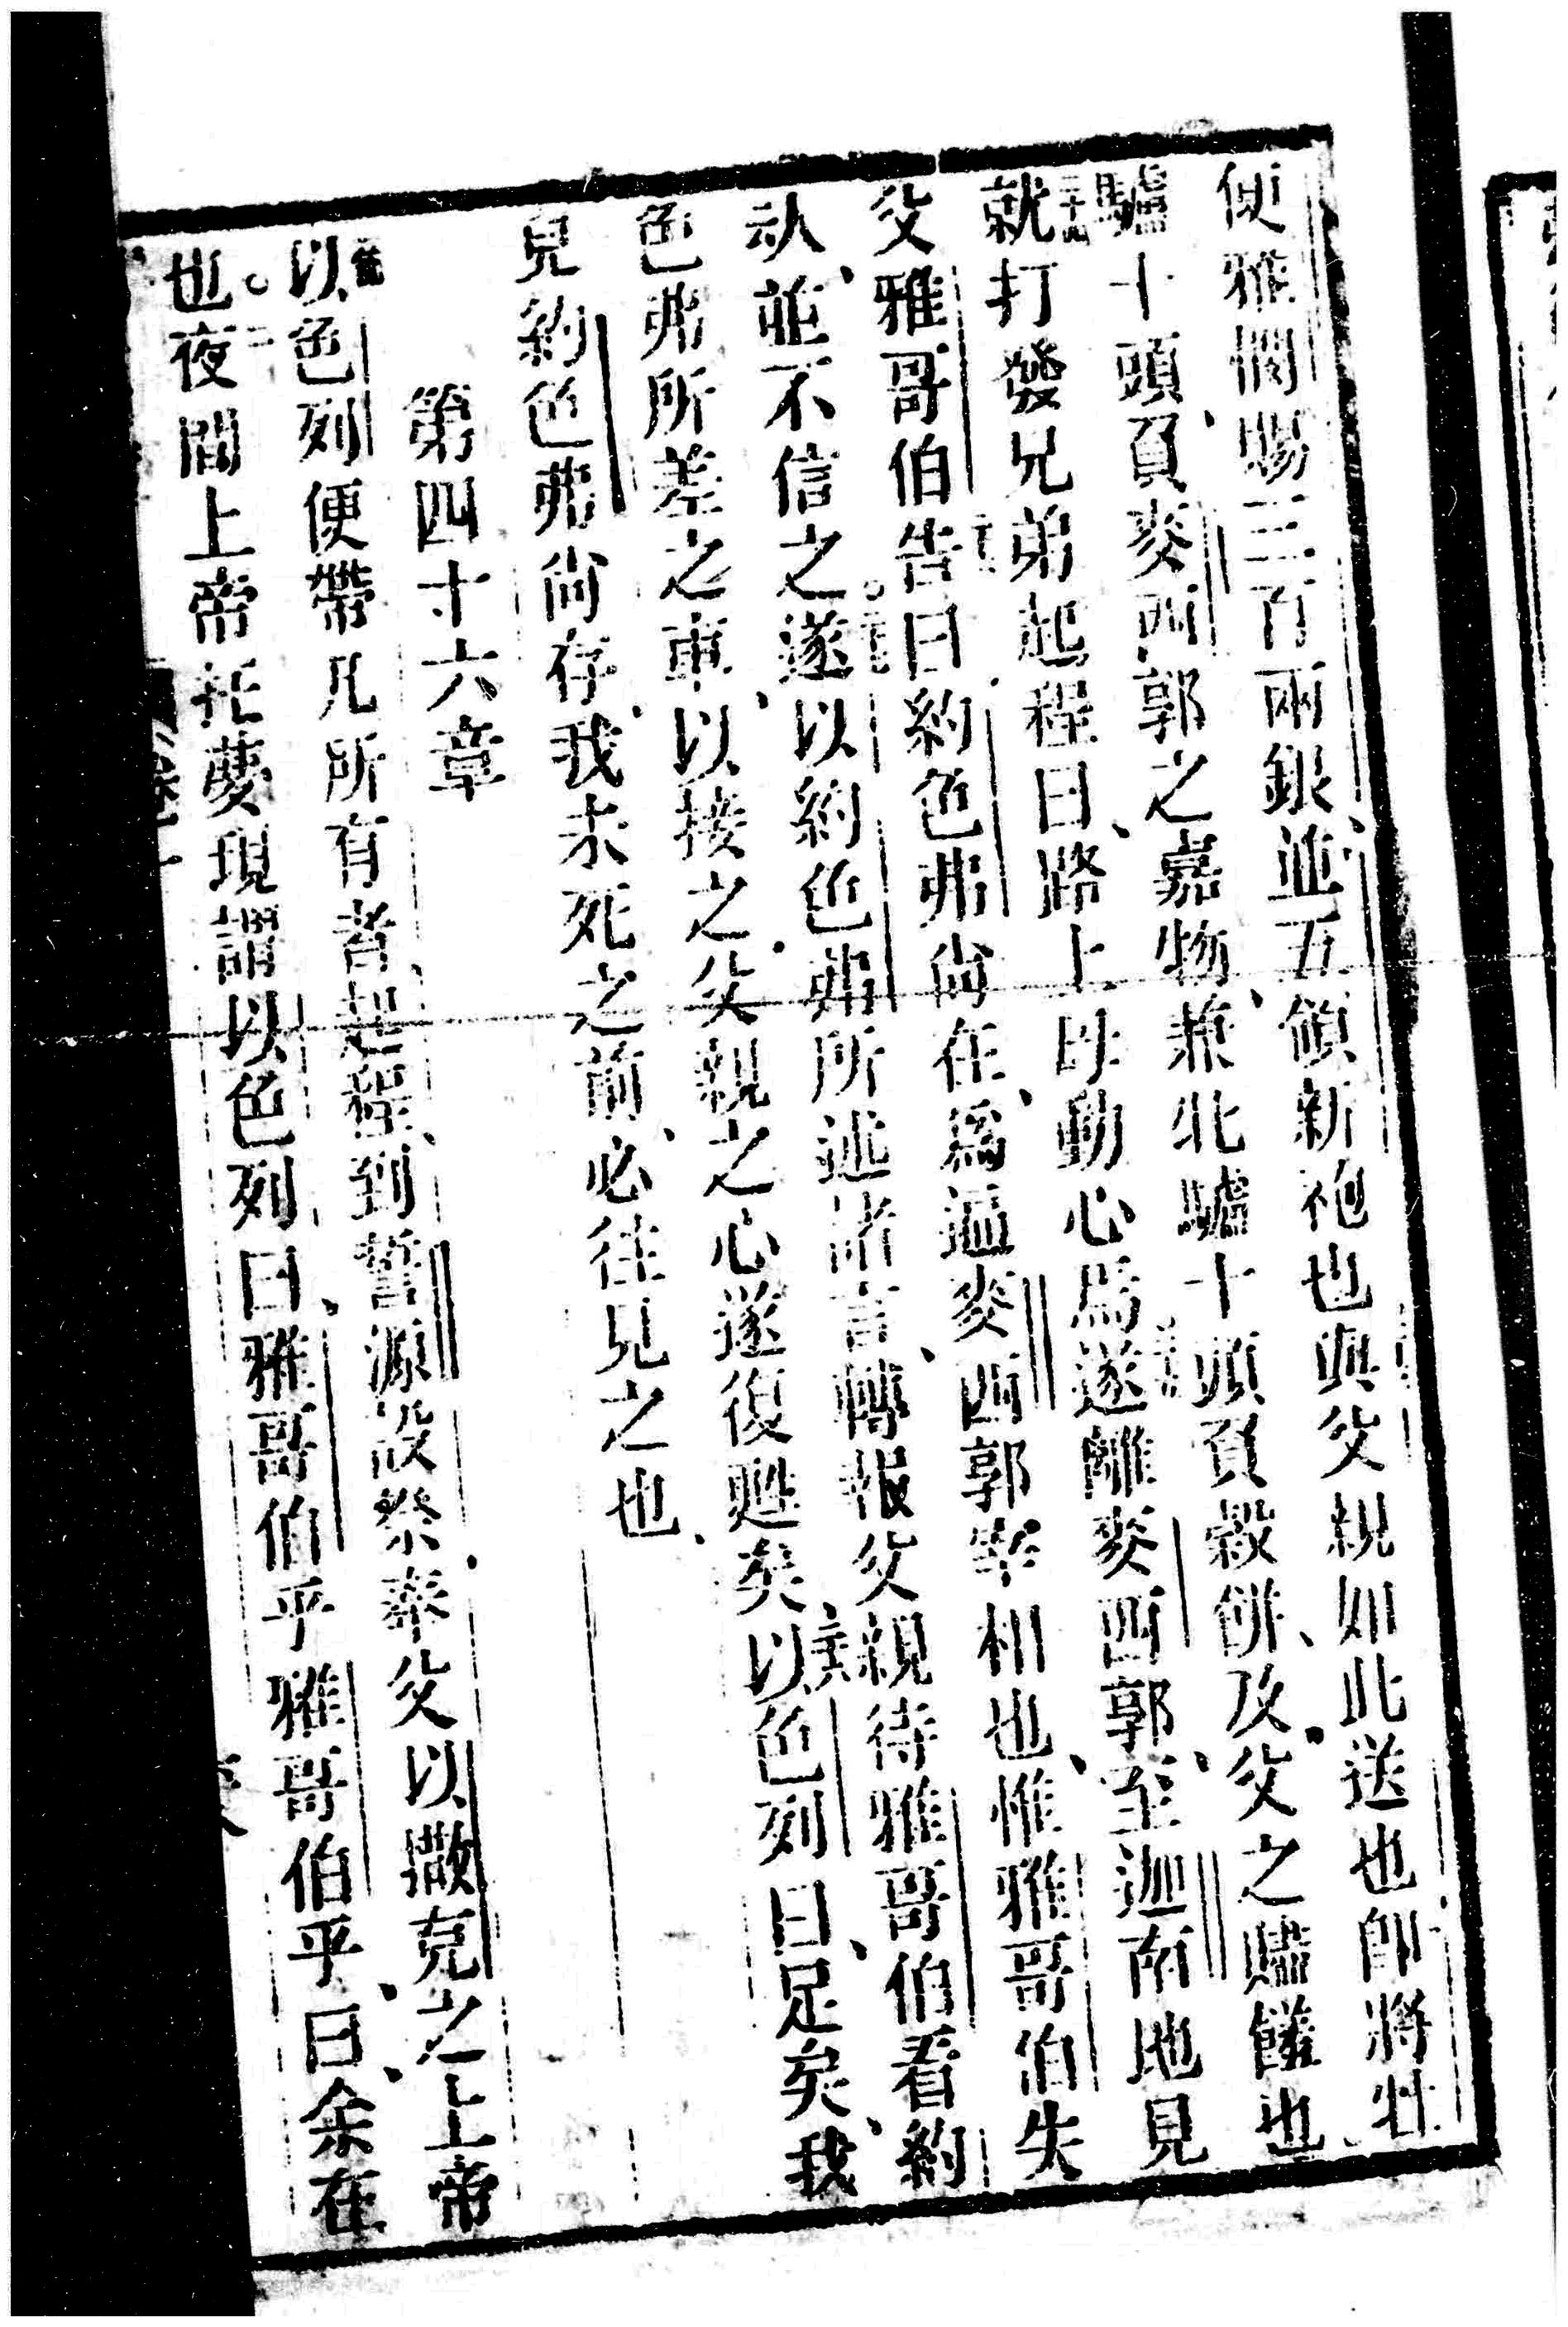 便雅憫賜三百兩銀、並五領新袍也與父親如此送也卽將牡
驢十頭、負麥西郭之嘉物、兼牝驢十頭負穀餠、及父之贐饈也
就打發兄弟起程曰、路上毋動心焉遂離麥西郭、至迦南地見
父雅哥伯告曰約色弗尙在、爲逼麥西郭宰相也、惟雅哥伯失
㳄、並不信之遂以約色弗所述諸言、轉報父親待雅哥伯看約
色弗所差之車、以接之、父親之心遂復甦矣、以色列曰、足矣、我
兒約色弗尙存、我未死之前、必往見之也、
第四十六章
以色列便帶凡所有者、起程、到誓源設祭奉父以撒克之上帝
也夜間上帝托夢現謂以色列曰、雅哥伯乎雅哥伯乎、曰、余在